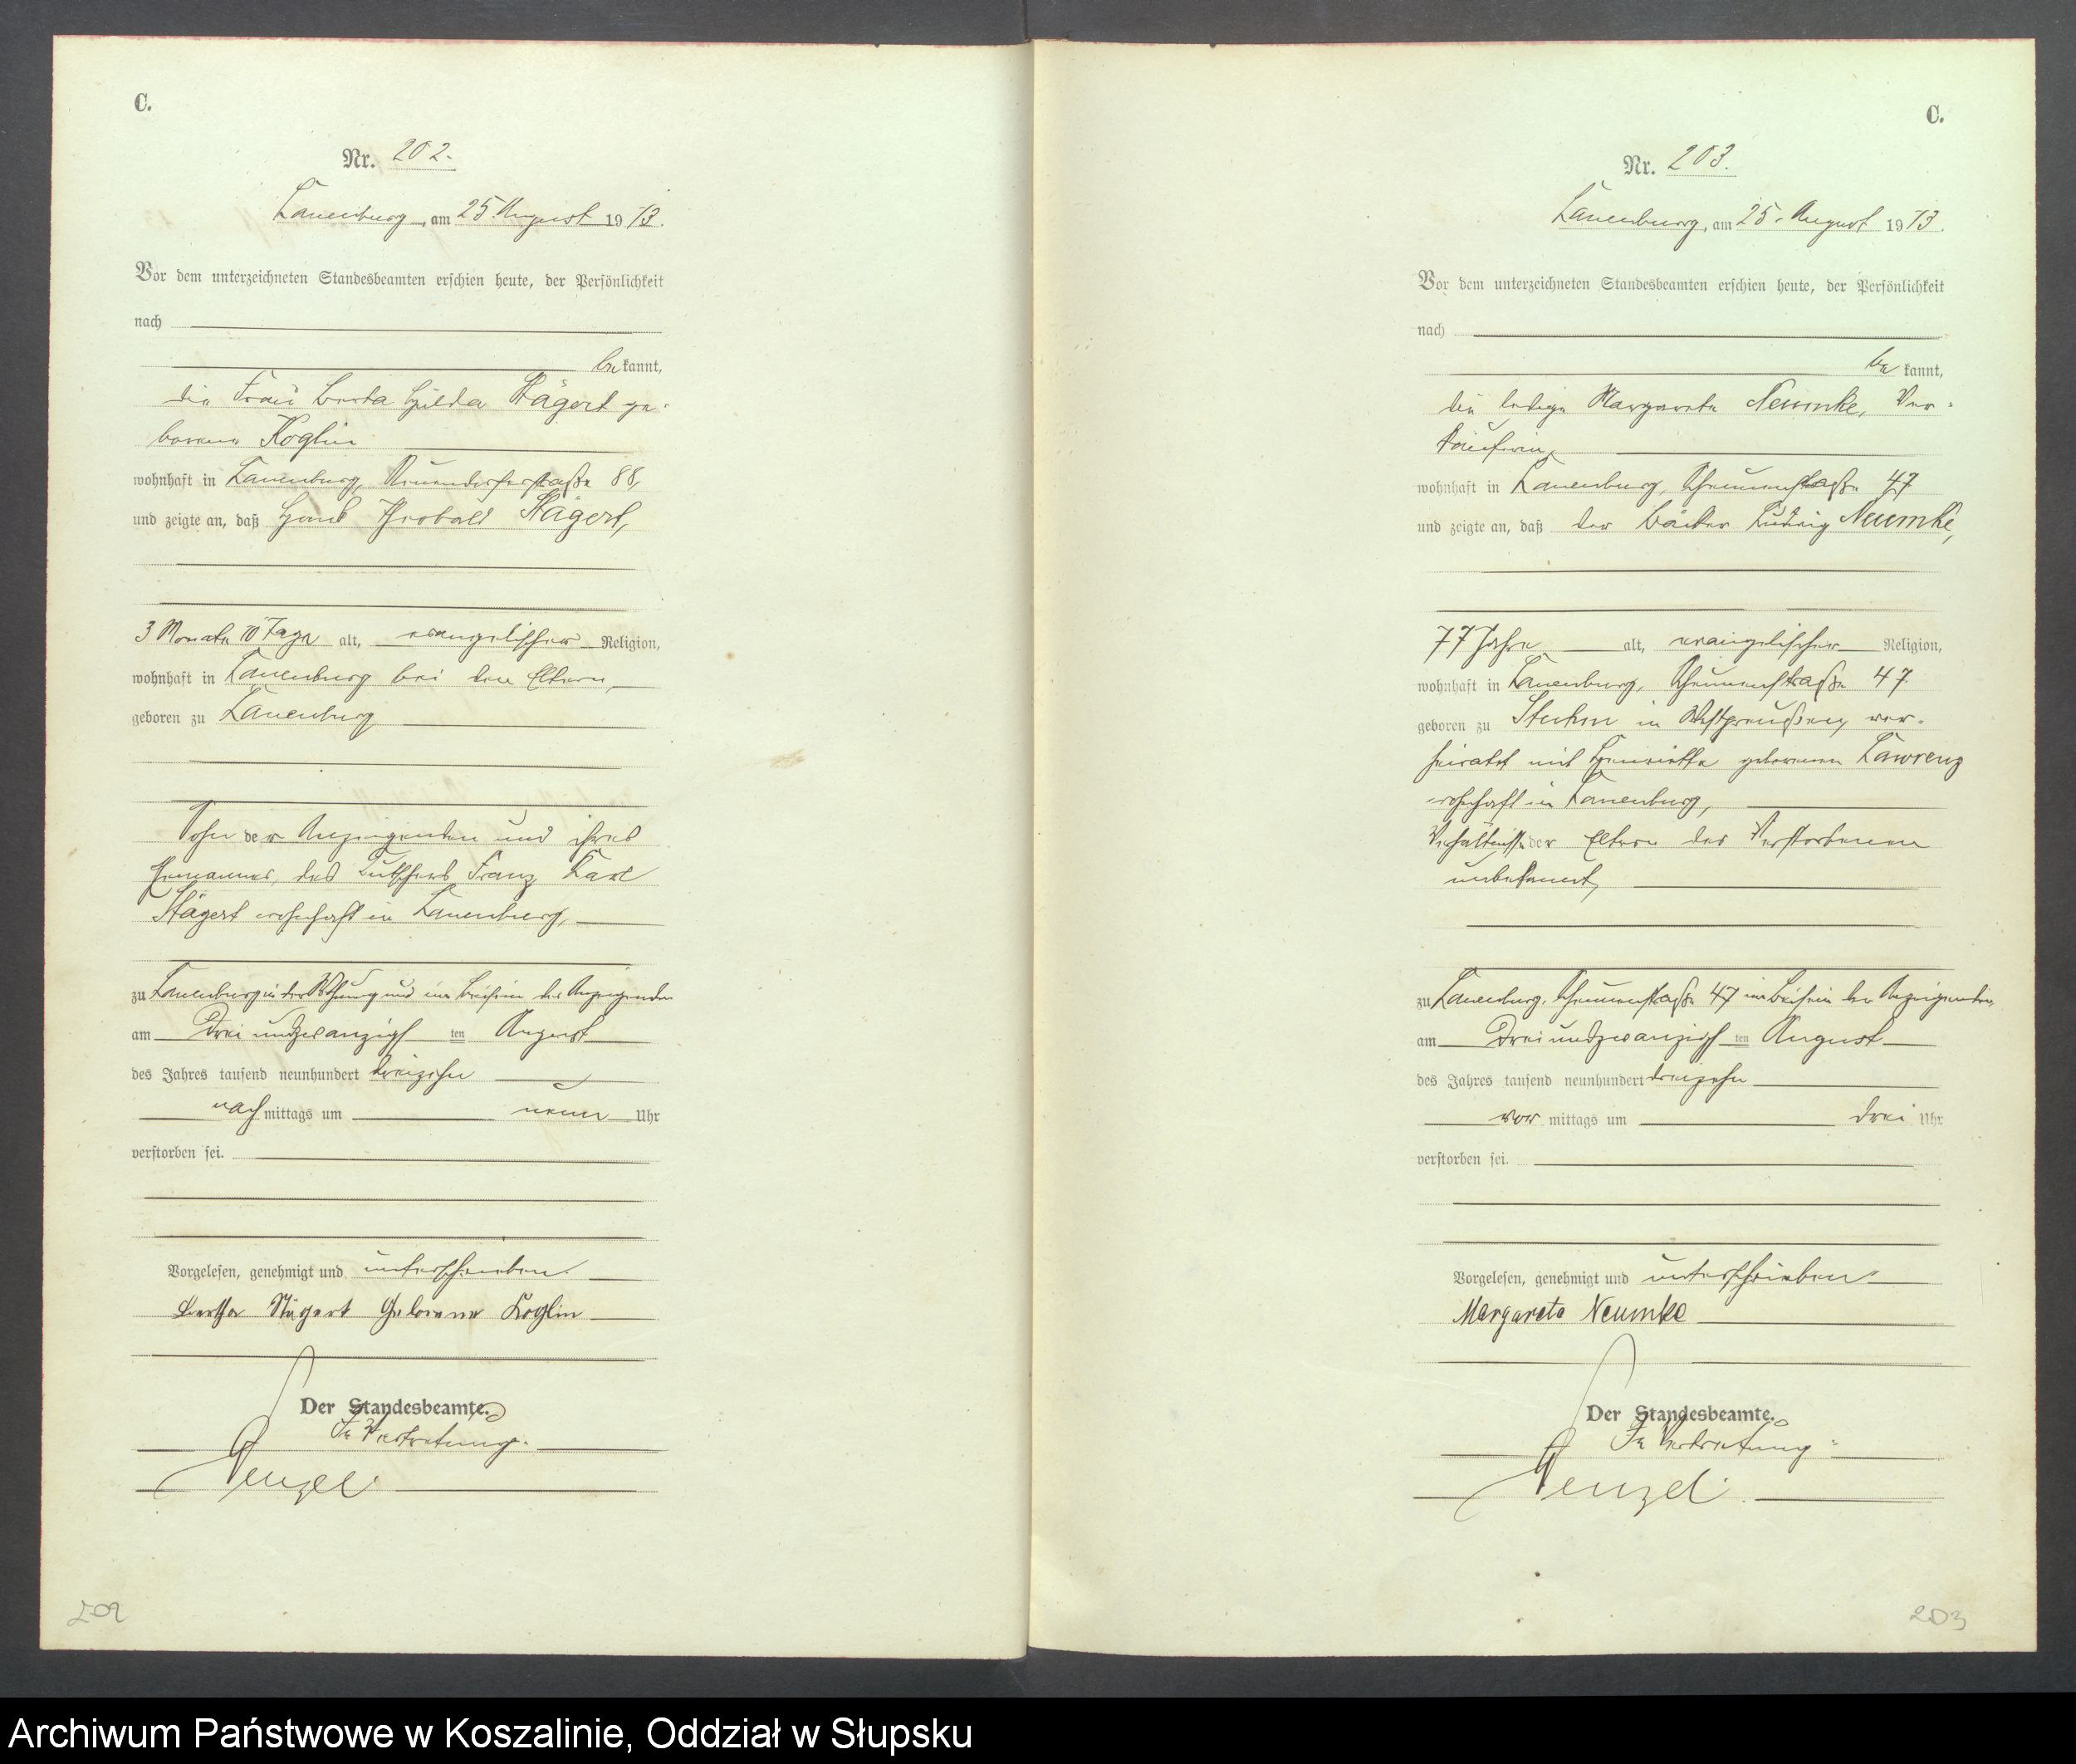 C.
Nr. 202.
Lauenburg, am 25. August 1913.
Vor dem unterzeichneten Standesbeamten erschien heute, der Persönlichkeit
nach
bekannt,
die Frau Berta Hulda Stägert ge-
borene Koglin
wohnhaft in Lauenburg, Neuendorferstraße 88,
und zeigte an, daß Hans Theobald Stägert,
3 Monate 10 Tage alt, evangelischer Religion,
wohnhaft in Lauenburg bei den Eltern,
geboren zu Lauenburg
Sohn der Anzeigenden und ihres
Ehemannes, des Kutschers Franz Karl
Stägert wohnhaft in Lauenburg,
zu Lauenburg in der Wohnung und im Beisein der Anzeigenden
am Dreiundzwanzigsten August
des Jahres tausend neunhundert dreizehn
nachmittags um neun Uhr
verstorben sei.
Vorgelesen, genehmigt und unterschrieben.
Bertha Stägert Geborene Koglin
Der Standesbeamte.
In Vertretung.
Wenzel
202
C.
Nr. 203.
Lauenburg, am 25. August 1913.
Vor dem unterzeichneten Standesbeamten erschien heute, der Persönlichkeit
nach
bekannt,
die ledige Margarete Neumke, Ver-
käuferin,
wohnhaft in Lauenburg, Scheunenstraße 47
und zeigte an, daß der Bäcker Ludwig Neumke,
77 Jahre alt, evangelischer Religion,
wohnhaft in Lauenburg, Scheunenstraße 47
geboren zu Stuhm in Westpreußen, ver-
heiratet mit Henriette geborenen Lawrenz
wohnhaft in Lauenburg,
Verhältnisse der Eltern des Verstorbenen
unbekannt,
zu Lauenburg, Scheunenstraße 47 im Beisein der Anzeigenden
am Dreiundzwanzigsten August
des Jahres tausend neunhundert dreizehn
vormittags um drei Uhr
verstorben sei.
Vorgelesen, genehmigt und unterschrieben
Margarete Neumke
Der Standesbeamte.
In Vertretung.
Wenzel.
203
Archiwum Państwowe w Koszalinie, Oddział w Słupsku